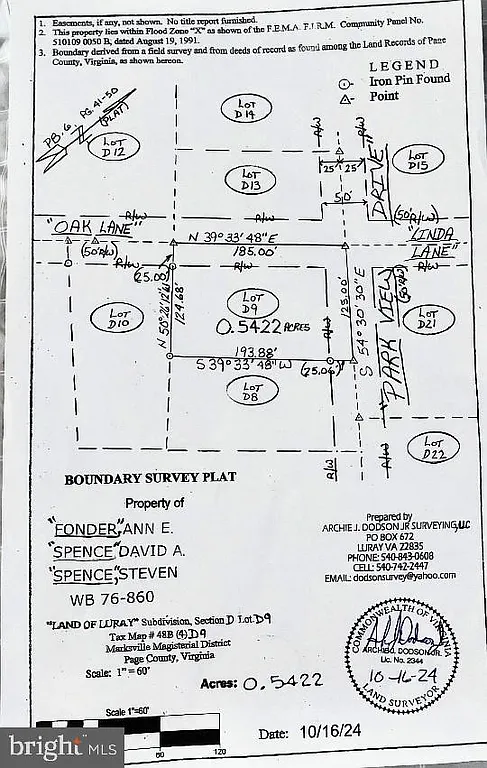 1. Easements, if any, not shown. No title report furnished.
2. This property lies within Flood Zone "X" as shown of the F.E.M.A. F.I.R.M. Community Panel No.
510109 0050 B, dated August 19, 1991.
3. Boundary derived from a field survey and from deeds of record as found among the Land Records of Page
County, Virginia, as shown hereon.
LEGEND
Iron Pin Found
Point
PB. 6 PG. 41-50
(PLAT)
LOT D12
LOT D14
LOT D13
R/W
R/W
25' 25'
50'
LOT D15
"PARK VIEW DRIVE"
(50' R/W)
R/W
R/W
"OAK LANE"
(50' R/W)
R/W
N 39° 33' 48" E
185.00'
"LINDA
LANE"
R/W
(25.00')
LOT D10
N 50° 26' 12" W
124.68'
LOT D9
0.5422 ACRES
R/W
125.00'
S 54° 30' 30" E
(50' R/W)
LOT D21
193.88'
S 39° 33' 48" W
(25.06')
LOT D8
R/W
R/W
LOT D22
BOUNDARY SURVEY PLAT
Property of
"FONDER," ANN E.
"SPENCE," DAVID A.
"SPENCE," STEVEN
WB 76-860
Prepared by
ARCHIE J. DODSON JR SURVEYING, LLC
PO BOX 672
LURAY VA 22835
PHONE: 540-843-0608
CELL: 540-742-2447
EMAIL: dodsonsurvey@yahoo.com
"LAND OF LURAY" Subdivision, Section D Lot D9
Tax Map # 48B (4) D9
Marksville Magisterial District
Page County, Virginia
Scale: 1" = 60'
Acres: 0.5422
COMMONWEALTH OF VIRGINIA
ARCHIE J. DODSON JR.
Lic. No. 2344
10-16-24
LAND SURVEYOR
Scale 1"=60'
60
120
Date: 10/16/24
bright MLS